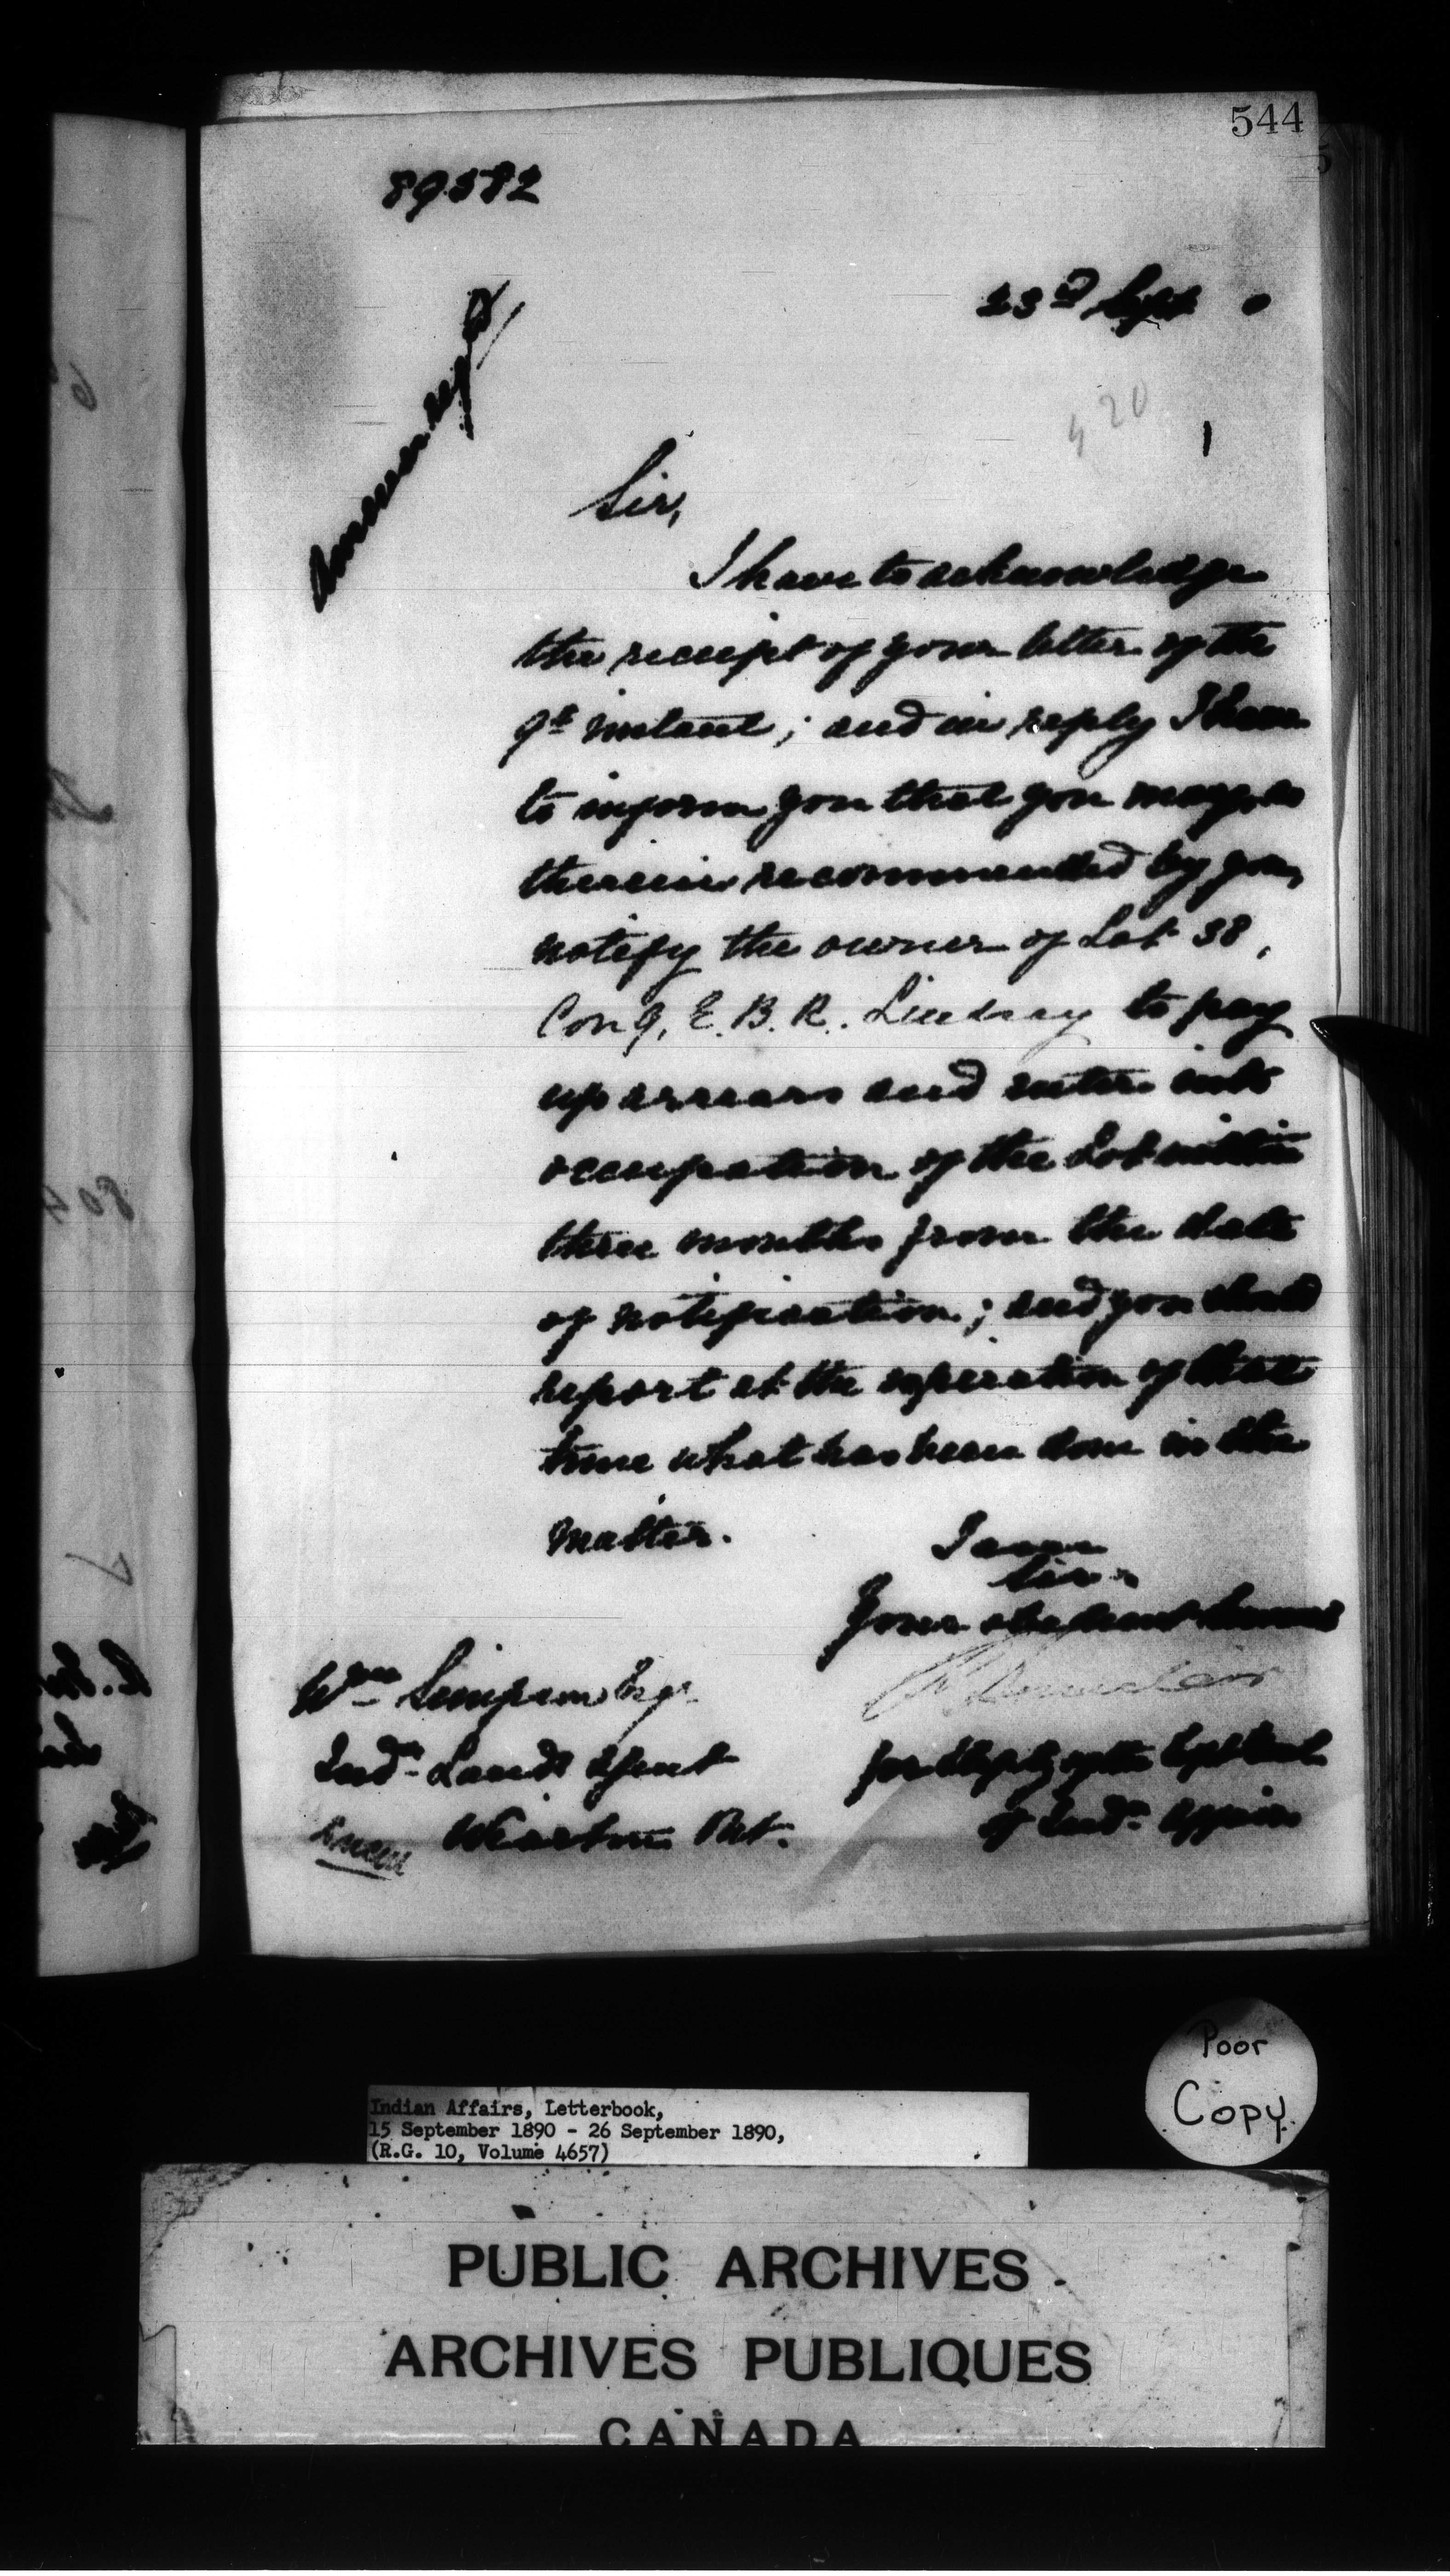 544
89582
23d Sept 0
420
Sir,
I have to acknowledge
the receipt of your letter of the
9th instant; and in reply I have
to inform you that you may, as
therein recommended by you,
notify the owner of Lot 38,
Con 9, E. B. R. Lindsay to pay
up arrears and enter into
occupation of the Lot within
three months from the date
of notification; and you should
report at the expiration of that
time what has been done in the
matter.
I am
Sir,
Your obedient servant
Wm Simpson Esqr
Indn Lands Agent
Wiarton Ont.
for Deputy of the Supt Genl
of Indn Affairs
Poor
Copy.
Indian Affairs, Letterbook,
15 September 1890 - 26 September 1890,
(R.G. 10, Volume 4657)
PUBLIC ARCHIVES
ARCHIVES PUBLIQUES
CANADA